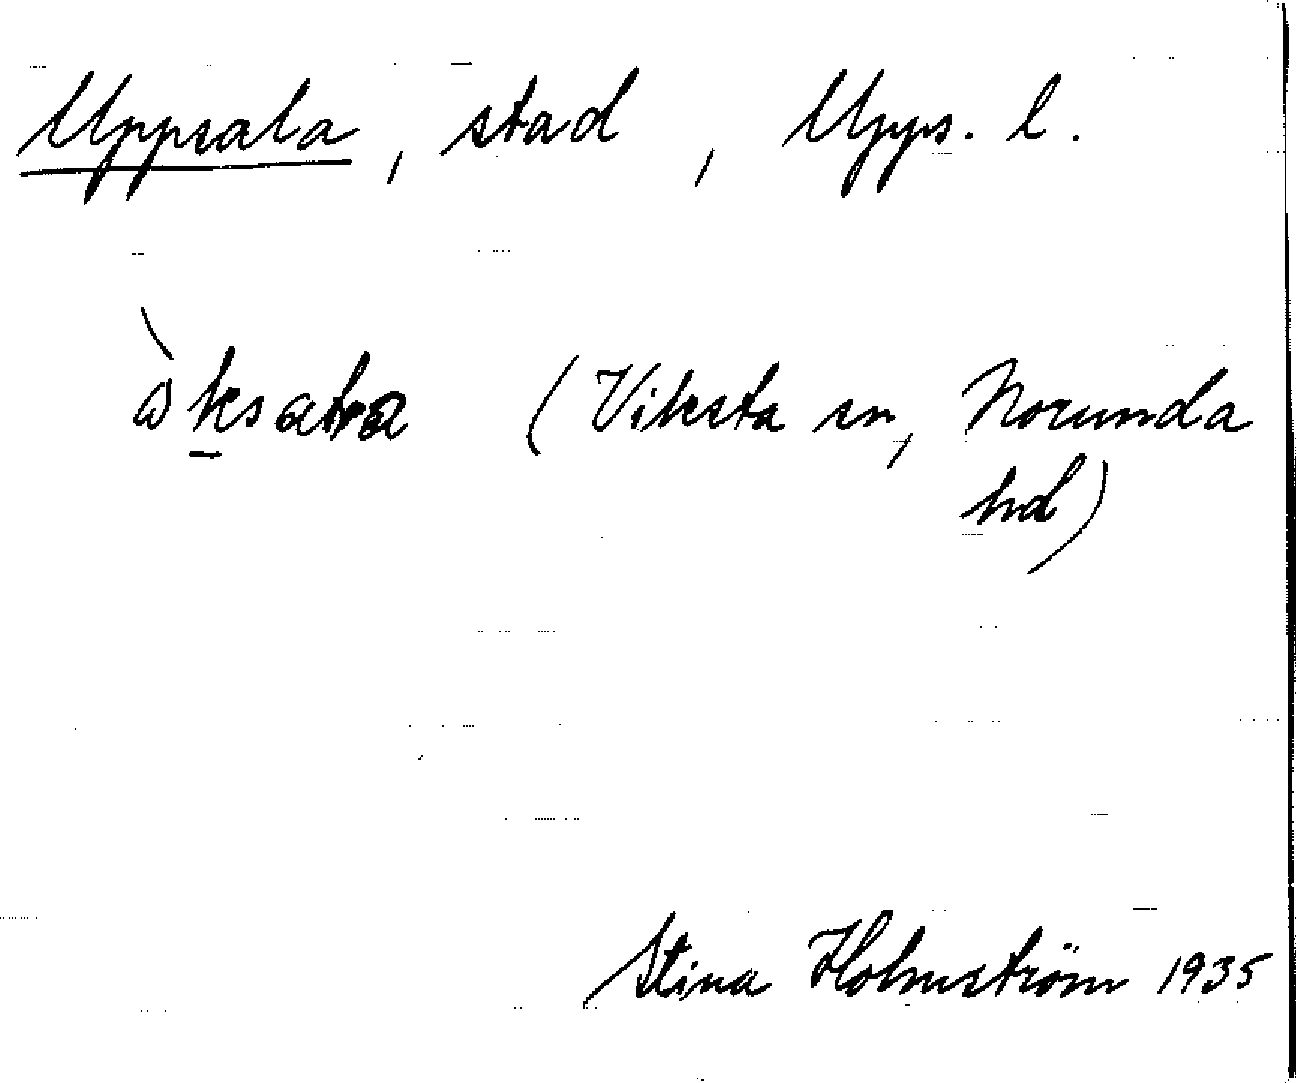 Uppsala, stad, Upps. l.
(Viksta sn, Norunda
hd)
Stina Holmström 1935